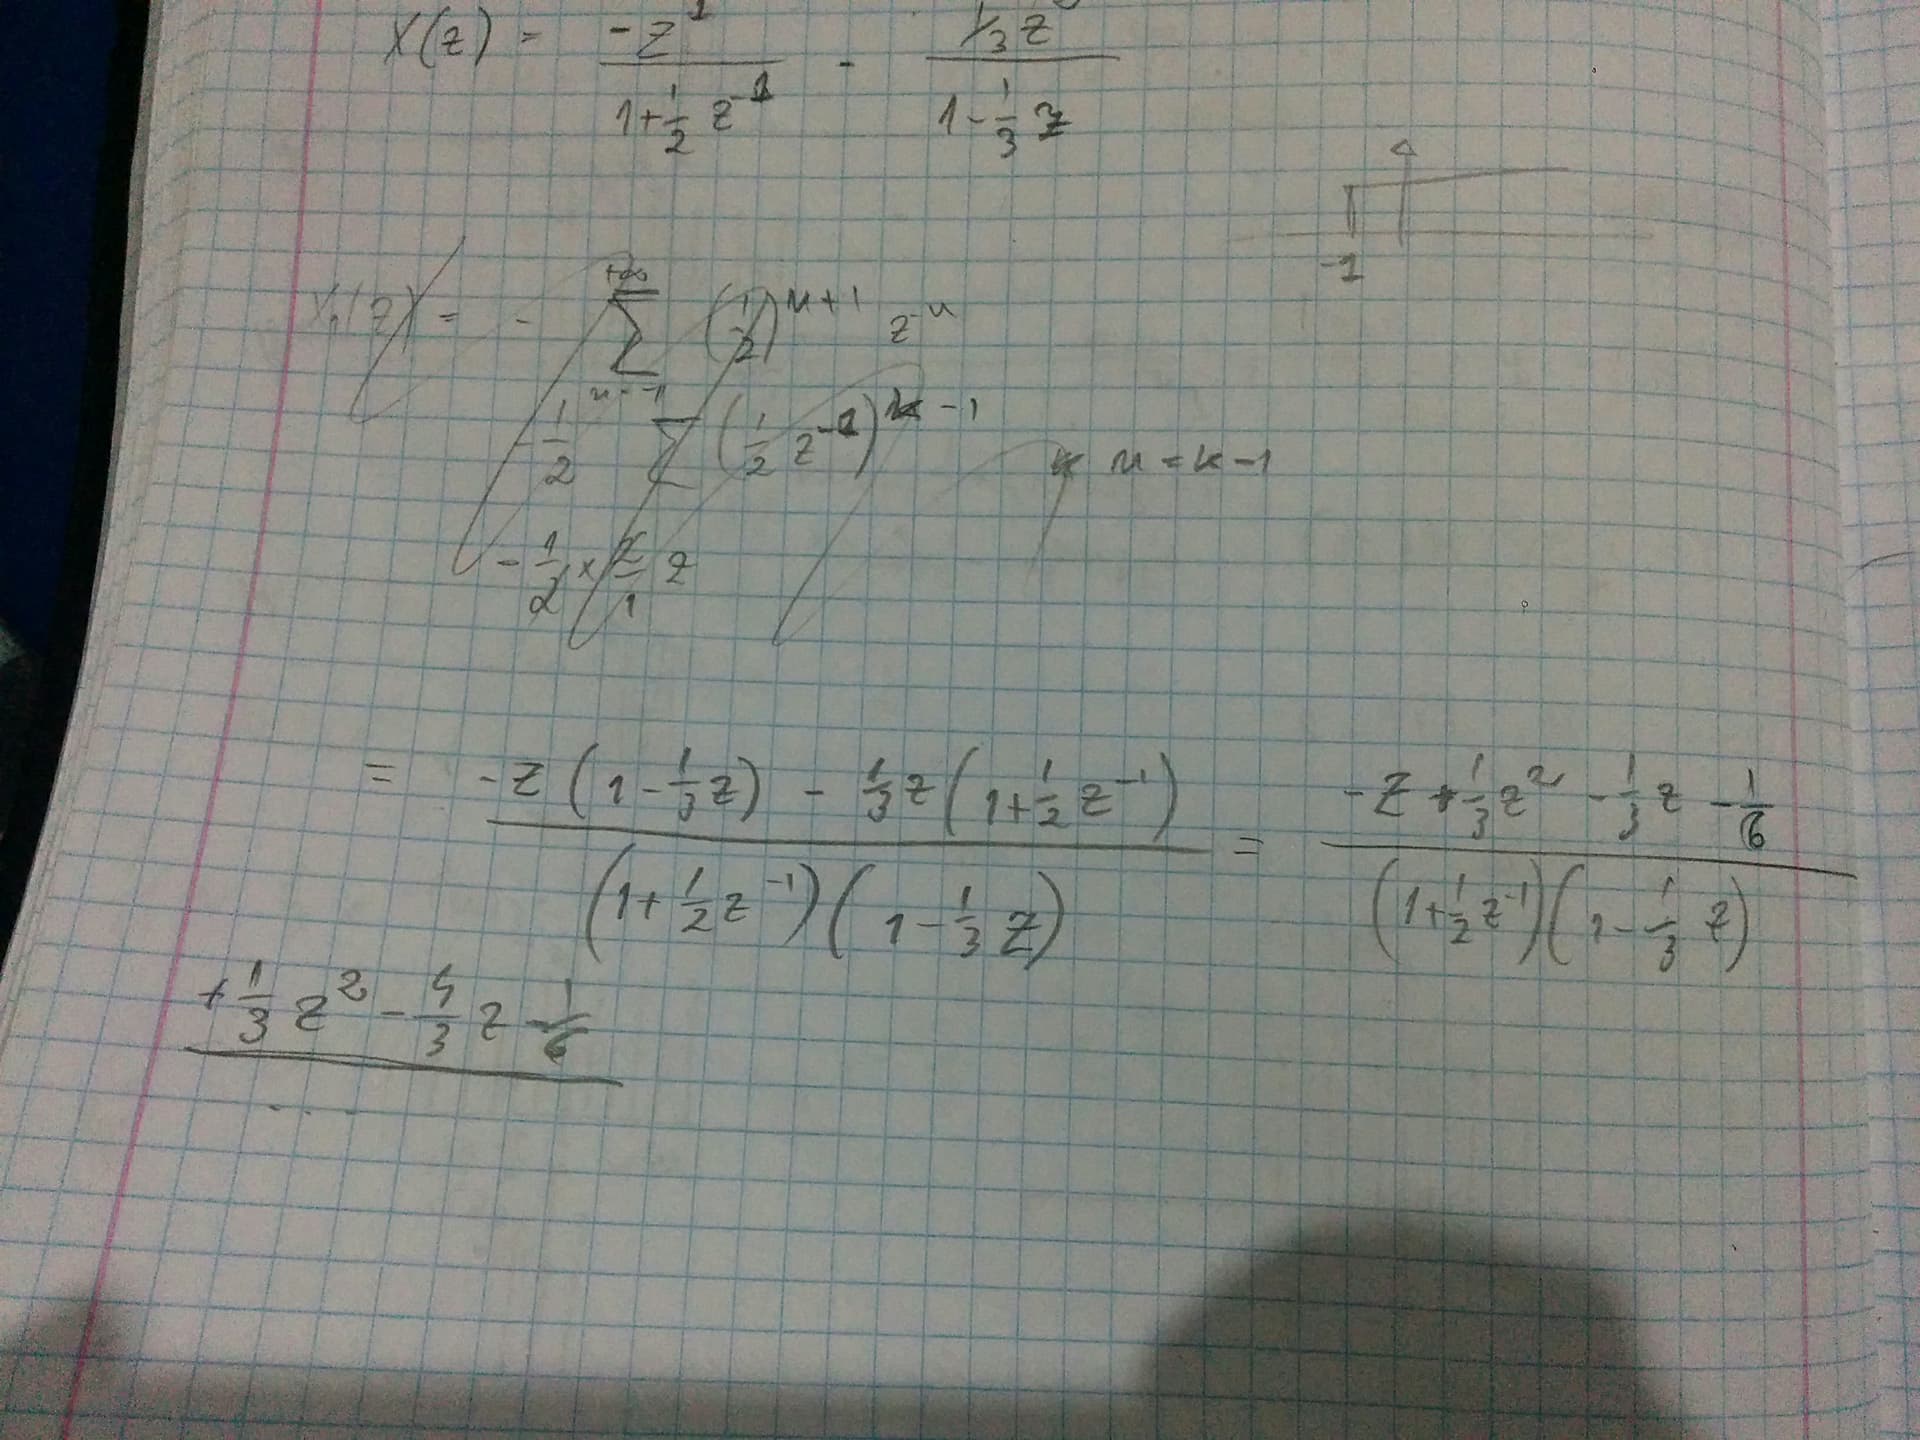 X(z) = -z^1 / (1+1/2 z^-1) - 1/3 z / (1-1/3 z)
-1
X₁(z) = - Σ_{n=-1}^{+∞} (1/2)^{n+1} z^{-n}
-1/2 Σ (1/2 z^-1)^{k-1} n = k-1
-1/2 × 2/1 z
= (-z(1-1/3 z) - 1/3 z(1+1/2 z^-1)) / ((1+1/2 z^-1)(1-1/3 z)) = (-z+1/3 z^2 -1/3 z -1/6) / ((1+1/2 z^-1)(1-1/3 z))
+1/3 z^2 - 4/3 z - 1/6
...